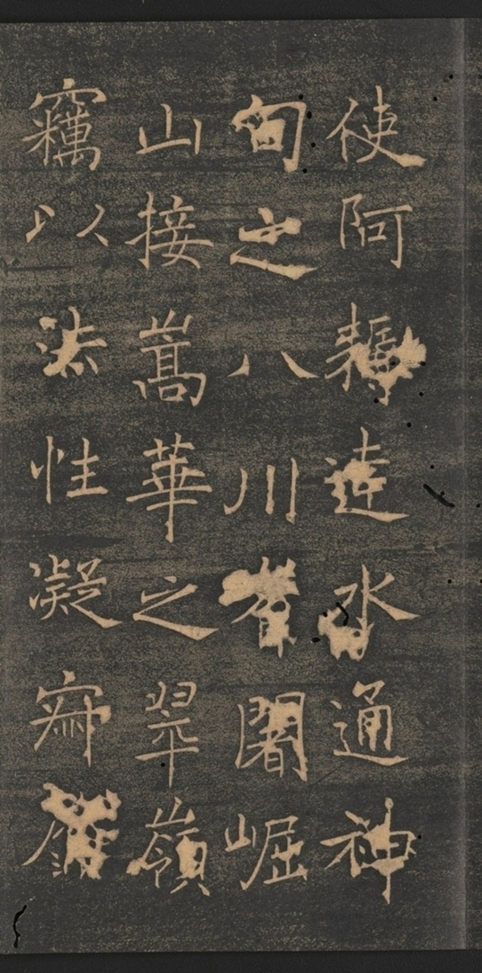 使阿耨達水通神
甸之八川耆闍崛
山接嵩華之翠嶺
竊以法性凝寂靡